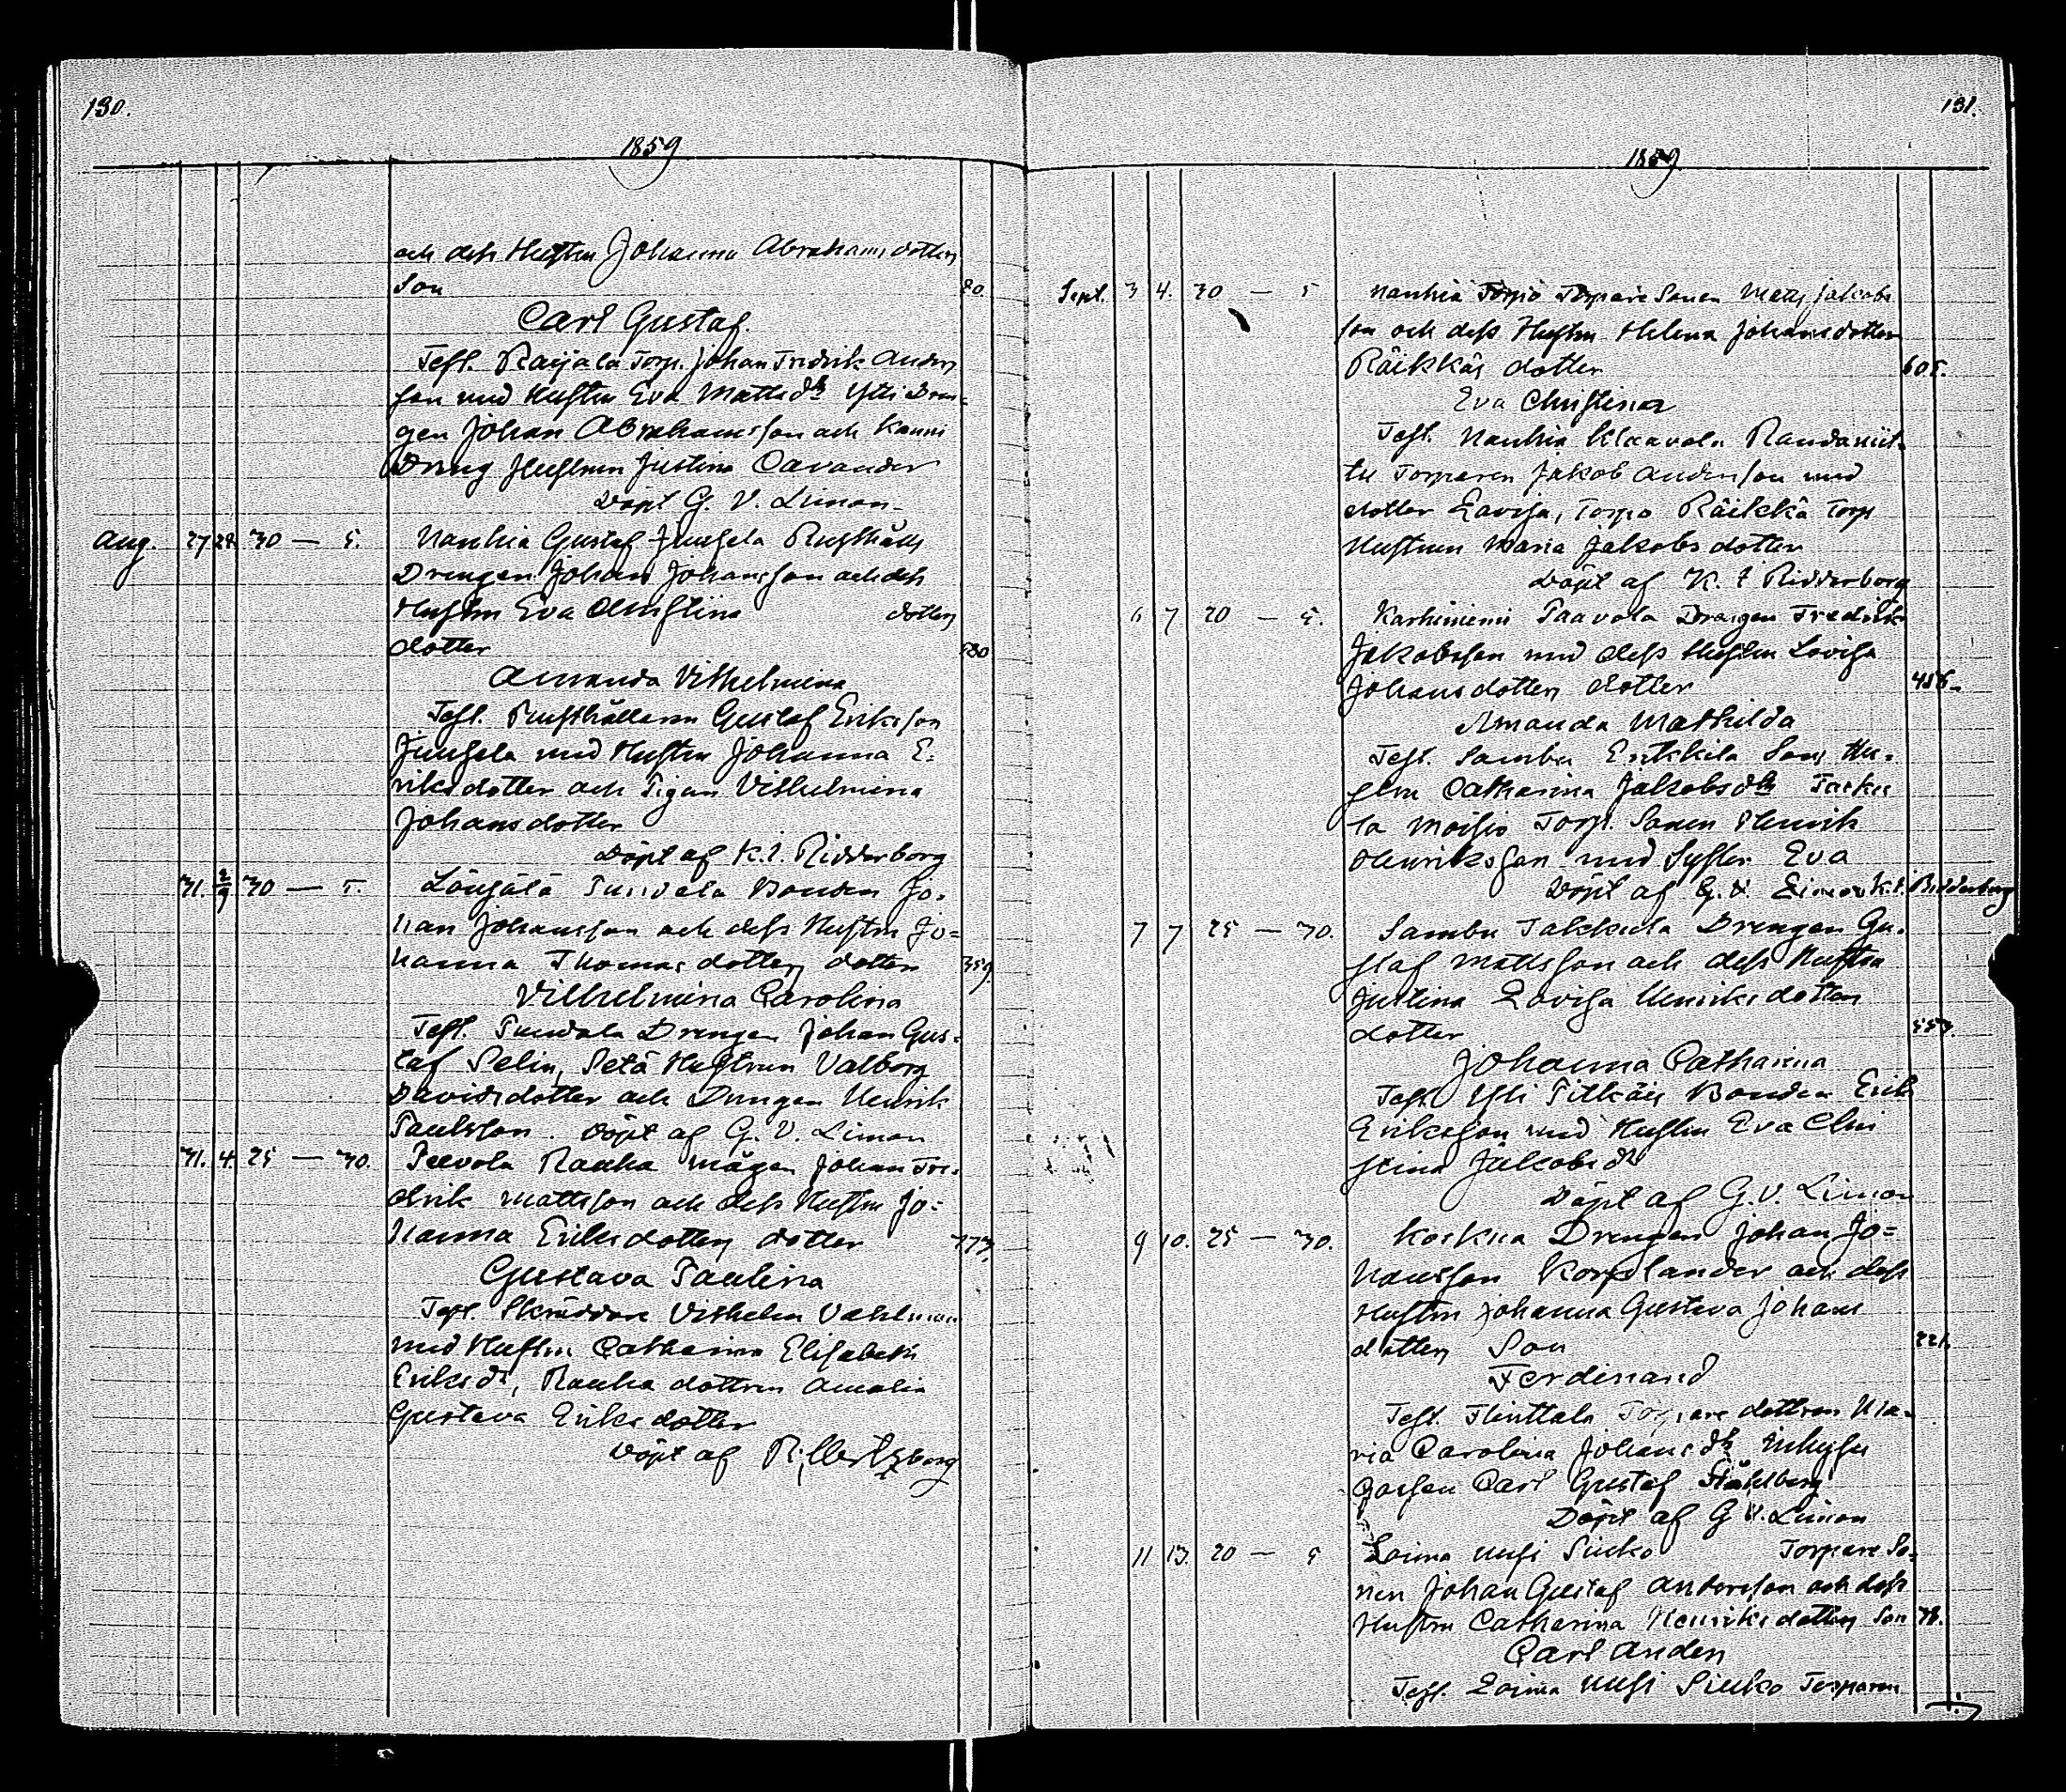 130.
1859
och dess Hustru Johanna Abrahamsdotters
Son 80.
Carl Gustaf.
Test. Raijala Torp. Johan Fredrik Anders
son med Hustru Eva Mattsdr Ylli Dren-
gen Johan Abrahamsson och Kauni
Dreng Hustrun Justina Cavander
Döpt G. V. Limon.
Aug. 27 28 30 — 5. Nanhia Gustaf Junsela Rusthålls
Drengen Johan Johansson och dess
Hustru Eva Christina dotters
dotter 580
Amanda Vilhelmina
Test. Rusthållaren Gustaf Eriksson
Junsela med Hustru Johanna E-
riksdotter och Pigan Vilhelmina
Johansdotter
Döpt af K. I. Ridderborg
31. 2/9 30 — 5. Punola Bonden Jo-
han Johansson och dess Hustru Jo=
hanna Thomasdotters dotter 359.
Vilhelmina Carolina
Test. Drengen Johan Gus-
taf Selin, Setä Hustrun Valborg
Davidsdotter och Drengen Henrik
Paulsson. Döpt af G. V. Limon
31. 4. 25 — 30. Peevola Rauha mågen Johan Fre-
drik Mattsson och dess Hustru Jo=
hanna Eriksdotters dotter
Gustava Paulina
Test. Skräddare Vilhelm Vahlman
med Hustru Catharina Elisabeth
Eriksdr, Rauha dottren Amalia
Gustava Eriksdotter
Döpt af
131.
1859.
Sept. 3 4. 30 — 5 Nanhia Torpare Sonen Matts Jakobs
son och dess Hustru Helena Johansdotters
Räikkäs dotter 605.
Eva Christina
Test. Nanhia Raudanut-
tu Torparen Jakob Andersson med
dotter Lovisa, Torpa Räikkä Torp
Hustrun Maria Jakobsdotter
Döpt af K. I Ridderborg
6 7 20 — 5. Karhiniemi Paavola Drengen Fredrik
Jakobsson med dess Hustru Lovisa
Johansdotters dotter 456.
Amanda Mathilda
Test. Sambu Erikkila Sons Hu-
stru Catharina Jakobsdtr
ta Moisio Torp. Sonen Henrik
Henriksson med Syster Eva
Döpt af G. V. Limon K. I. Ridderborg
7 7 25 — 30. Sambu Jakkula Drengen Gu-
staf Mattsson och dess Hustru
Justina Lovisa Henriksdotters
dotter 553.
Johanna Catharina
Test Yli Pitkäis Bonden Erik
Eriksson med Hustru Eva Chri
stina Jakobsdr
Döpt af G. V. Limon
9 10. 25 — 30. Koskua Drengen Johan Jo=
hansson Korplander och dess
Hustru Johanna Gustava Johans
dotters Son 221.
Ferdinand
Test. Torpare dottren Ma-
ria Carolina Johansdtr Inhyses
Gossen Carl Gustaf Ståhlberg
Döpt af G V. Limon
11 13. 20 — 5 Loima Uusi Siuko Torpare So-
nen Johan Gustaf Andersson och dess
Hustru Catharina Henriksdotters Son 78.
Carl Anders
Test. Loima Uusi Siuko Torparen